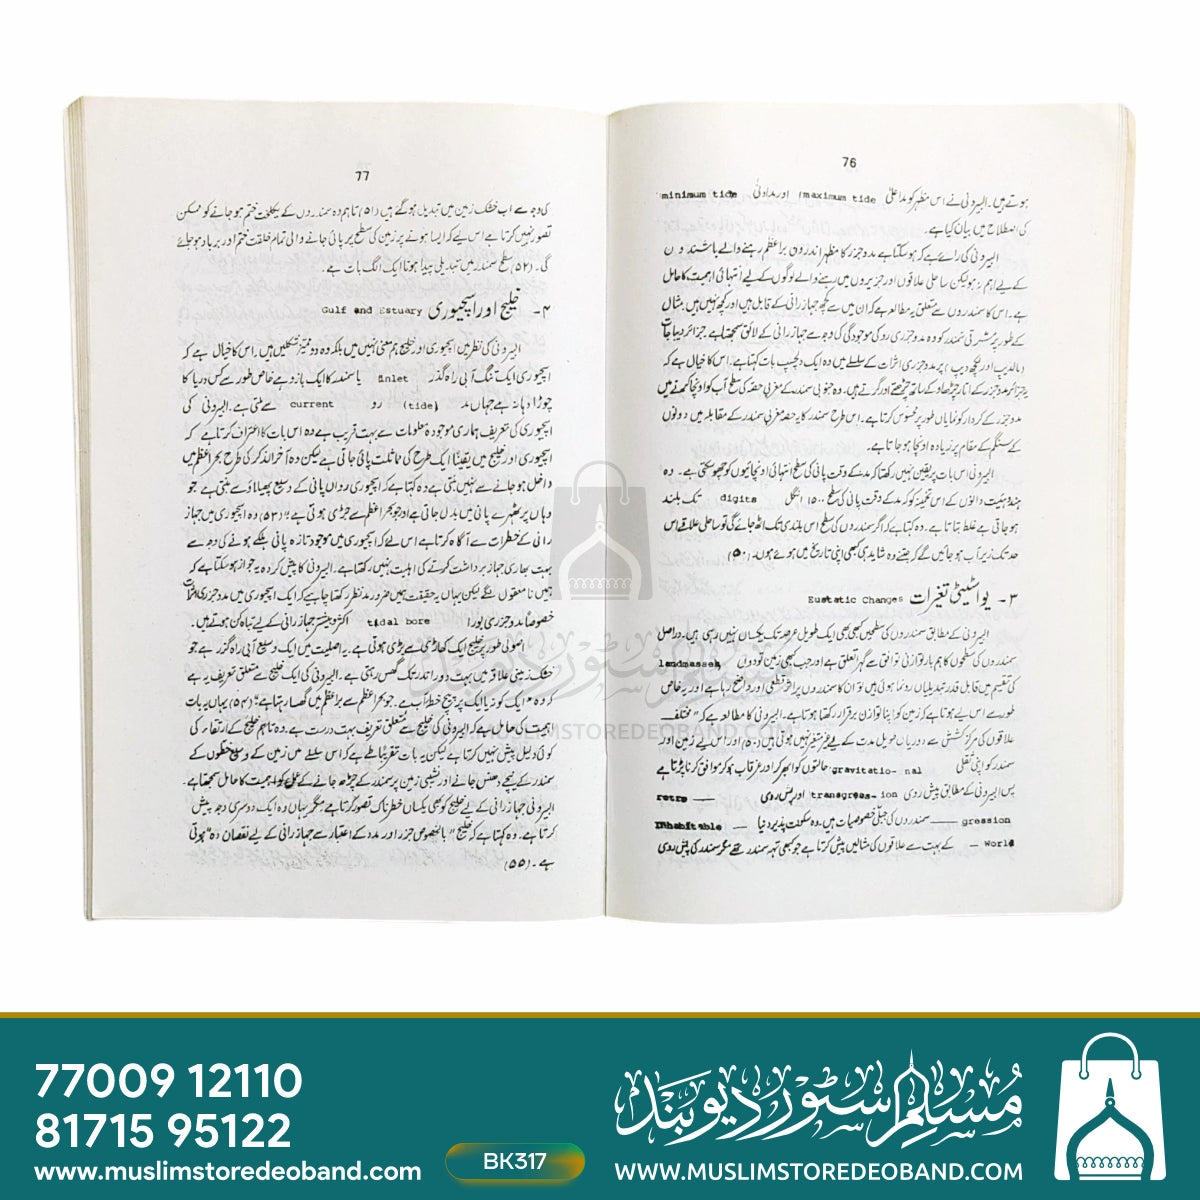 76
ہوتے ہیں۔ البیرونی نے اس مظہر کو مد اعلیٰ (maximum tide اور مد ادنیٰ minimum tide
کی اصطلاح میں بیان کیا ہے۔
البیرونی کی رائے ہے کہ ہو سکتا ہے مد و جزر کا مظہر اندرون براعظم رہنے والے باشندوں
کے لیے اہم نہ ہو لیکن ساحلی علاقوں اور جزیروں میں رہنے والے لوگوں کے لیے انتہائی اہمیت کا حامل
ہے۔ اس کا سمندروں سے متعلق مطالعہ ہے کہ ان میں سے کچھ جہاز رانی کے قابل ہیں اور کچھ نہیں ہیں مثال
کے طور پر مشرقی سمندر کو وہ مد و جزری رو کی موجودگی کی وجہ سے جہاز رانی کے لائق سمجھتا ہے۔ جزائر دیبا جات
(مالدیپ اور لکچھ دیپ) پر مد و جزری اثرات کے سلسلے میں وہ ایک دلچسپ بات کہتا ہے۔ اس کا خیال ہے کہ
یہ جزائر مد و جزر کے اتار چڑھاؤ کے ساتھ چڑھتے اور گرتے ہیں۔ وہ جنوبی سمندر کے مغربی حصہ کی سطح آب کو اونچا کرنے میں
مد و جزر کے کردار کو نمایاں طور پر محسوس کرتا ہے۔ اس طرح سمندر کا یہ حصہ مغربی سمندر کے مقابلہ میں دونوں
کے سنگم کے مقام پر زیادہ اونچا ہو جاتا ہے۔
البیرونی اس بات پر یقین نہیں رکھتا کہ مد کے وقت پانی کی سطح انتہائی اونچائیوں کو چھو سکتی ہے۔ وہ
ہندو ہیئت دانوں کے اس تخمینہ کو کہ مد کے وقت پانی کی سطح ۱۵۰۰ انگل digits تک بلند
ہو جاتی ہے غلط بتاتا ہے۔ وہ کہتا ہے کہ اگر سمندروں کی سطح اس بلندی تک اٹھ جائے گی تو ساحلی علاقے اس
حد تک زیر آب ہو جائیں گے کہ جتنے وہ شاید ہی کبھی اپنی تاریخ میں ہوئے ہوں۔ (۵۰)
۳۔ یواسٹیٹی تغیرات Eustatic Changes
البیرونی کے مطابق سمندروں کی سطحیں کبھی بھی ایک طویل عرصہ تک یکساں نہیں رہی ہیں۔ دراصل
سمندروں کی سطحوں کا ہم بار توازنی توافق سے گہرا تعلق ہے اور جب کبھی زمین تودوں landmasses
کی تقسیم میں قابل قدر تبدیلیاں رونما ہوئی ہیں تو ان کا سمندروں پر اثر قطعی اور واضح رہا ہے اور یہ خاص
طور سے اس لیے ہوتا ہے کہ زمین کو اپنا توازن برقرار رکھنا ہوتا ہے۔ البیرونی کا مطالعہ ہے کہ "مختلف
علاقوں کی مرکز کشش سے دوریاں طویل مدت کے لیے غیر متغیر نہیں ہوتی ہیں (۵۰) اور اس لیے زمین اور
سمندر کو اپنی ثقلی gravitatio- nal حالتوں کو ابھر کر اور غرقاب ہو کر موافق کرنا پڑتا ہے
پس البیرونی کے مطابق پیش روی transgress-ion اور پس روی retro —
gression — سمندروں کی جبلی خصوصیات ہیں۔ وہ سکونت پذیر دنیا — Inhabitable
World — کے بہت سے علاقوں کی مثالیں پیش کرتا ہے جو کبھی تہہ سمندر تھے مگر سمندر کی پیش روی
77
کی وجہ سے اب خشک زمین میں تبدیل ہو گئے ہیں (۵۱) تاہم وہ سمندروں کے یکلخت ختم ہو جانے کو ممکن
تصور نہیں کرتا ہے اس لیے کہ ایسا ہونے پر زمین کی سطح پر پائی جانے والی تمام خلقت ختم اور برباد ہو جائے
گی۔ (۵۲) سطح سمندر میں تبدیلی پیدا ہونا ایک الگ بات ہے۔
۴۔ خلیج اور اسچیوری Gulf and Estuary
البیرونی کی نظر میں ایسچیوری اور خلیج ہم معنی نہیں ہیں بلکہ وہ دو ممیز شکلیں ہیں۔ اس کا خیال ہے کہ
ایسچیوری ایک تنگ آبی راہ گذر inlet یا سمندر کا ایک بازو ہے خاص طور سے کس دریا کا
چوڑا دہانہ ہے جہاں مد (tide) رو current سے ملتی ہے۔ البیرونی کی
ایسچیوری کی تعریف ہماری موجودہ معلومات سے بہت قریب ہے وہ اس بات کا اعتراف کرتا ہے کہ
ایسچیوری اور خلیج میں یقیناً ایک طرح کی مماثلت پائی جاتی ہے لیکن وہ آخر الذکر کی طرح بحر اعظم میں
داخل ہو جانے سے نہیں بنتی ہے وہ کہتا ہے کہ ایسچیوری رواں پانی کے وسیع پھیلاؤ سے بنتی ہے جو
وہاں پر ٹھہرے پانی میں بدل جاتی ہے اور جو بحر اعظم سے جڑی ہوتی ہے "(۵۳) وہ ایسچیوری میں جہاز
رانی کے خطرات سے آگاہ کرتا ہے اس لیے کہ ایسچیوری میں موجود تازہ پانی ہلکے ہونے کی وجہ سے
بہت بھاری جہاز برداشت کرنے کی اہلیت نہیں رکھتا ہے۔ البیرونی کا پیش کردہ یہ جواز ہو سکتا ہے کہ
ہمیں نامعقول لگے لیکن یہاں یہ حقیقت ہمیں ضرور مدنظر رکھنا چاہیے کہ ایک ایسچیوری میں مد و جزری اثرات
خصوصاً مد و جزری بورا tidal bore اکثر و بیشتر جہاز رانی کے لیے تباہ کن ہوتے ہیں۔
اصولی طور پر خلیج ایک کھاڑی سے بڑی ہوتی ہے۔ یہ اصلیت میں ایک وسیع آبی راہ گزر ہے جو
خشک زمینی علاقہ میں بہت دور اندر تک گھس رہتی ہے۔ البیرونی کی ایک خلیج سے متعلق تعریف یہ ہے
کہ وہ "ایک کوز یا ایک پر پیچ خطہ آب ہے۔ جو بحر اعظم سے براعظم میں گھسا رہتا ہے" (۵۴) یہاں یہ بات
اہمیت کی حامل ہے کہ البیرونی کی خلیج سے متعلق تعریف بہت درست ہے۔ وہ تاہم خلیج کے ارتقاء کی
کوئی دلیل پیش نہیں کرتا ہے لیکن یہ بات تقریباً طے ہے کہ اس سلسلے میں زمین کے وسیع حلقوں کے
سمندر کے نیچے دھنس جانے اور نشیبی زمین پر سمندر کے چڑھ جانے کے عمل کو اہمیت کا حامل سمجھتا ہے۔
البیرونی جہاز رانی کے لیے خلیج کو بھی یکساں خطرناک تصور کرتا ہے مگر یہاں وہ ایک دوسری وجہ پیش
کرتا ہے۔ وہ کہتا ہے کہ خلیج "بالخصوص جزر اور مد کے اعتبار سے جہاز رانی کے لیے نقصان دہ" ہوتی
ہے۔ (۵۵)
مسلم سٹور دیوبند
WWW.MUSLIMSTOREDEOBAND.COM
77009 12110
81715 95122
www.muslimstoredeoband.com
BK317
مسلم سٹور دیوبند
WWW.MUSLIMSTOREDEOBAND.COM